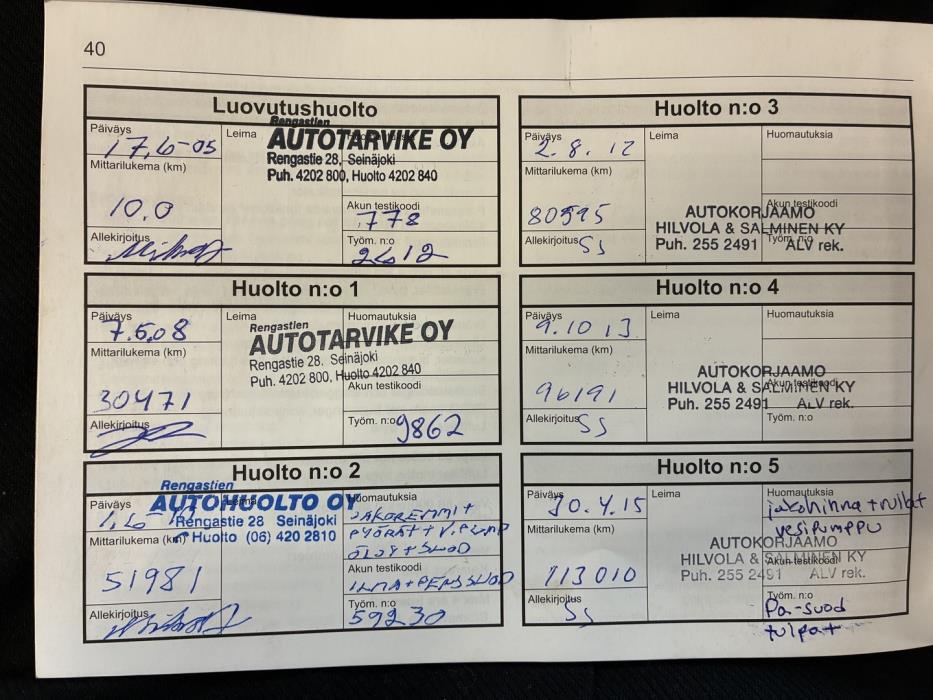 40
Luovutushuolto
Päiväys
17,6-05
Leima
Rengastien
AUTOTARVIKE OY
Rengastie 28, Seinäjoki
Puh. 4202 800, Huolto 4202 840
Mittarilukema (km)
10.0
Akun testikoodi
778
Allekirjoitus
Työm. n:o
2612
Huolto n:o 1
Päiväys
7.5.08
Leima
Huomautuksia
Rengastien
AUTOTARVIKE OY
Rengastie 28. Seinäjoki
Puh. 4202 800, Huolto 4202 840
Mittarilukema (km)
30471
Akun testikoodi
Allekirjoitus
Työm. n:o
9862
Huolto n:o 2
Päiväys
Rengastien
AUTOHUOLTO OY
Rengastie 28 Seinäjoki
Huolto (06) 420 2810
Huomautuksia
JAKOREMMI +
PYÖRÄT + V. PUMP
ÖLJY + SUOD
Mittarilukema (km)
51981
Akun testikoodi
ILMA + PENS SUOD
Allekirjoitus
Työm. n:o
59230
Huolto n:o 3
Päiväys
2.8.12
Leima
Huomautuksia
Mittarilukema (km)
80595
Akun testikoodi
AUTOKORJAAMO
HILVOLA & SALMINEN KY
Puh. 255 2491 ALV rek.
Allekirjoitus
SS
Työm. n:o
Huolto n:o 4
Päiväys
9.10 13
Leima
Huomautuksia
Mittarilukema (km)
96191
Akun testikoodi
AUTOKORJAAMO
HILVOLA & SALMINEN KY
Puh. 255 2491 ALV rek.
Allekirjoitus
SS
Työm. n:o
Huolto n:o 5
Päiväys
30.4.15
Leima
Huomautuksia
jakohihna + rullat
vesipumppu
Mittarilukema (km)
113010
AUTOKORJAAMO
HILVOLA & SALMINEN KY
Akun testikoodi
Puh. 255 2491 ALV rek.
Allekirjoitus
SS
Työm. n:o
Pa-suod
tulpat